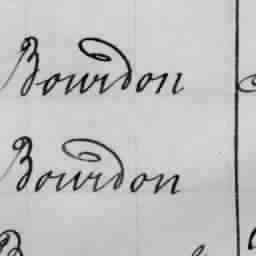 Bourdon
Bourdon